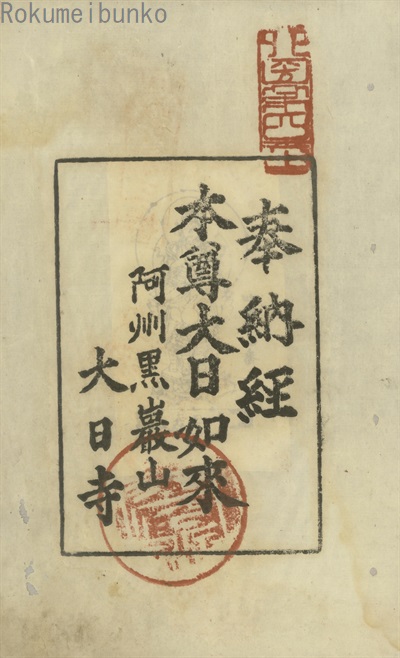 Rokumeibunko
奉納経
本尊大日如來
阿州黒巖山
大日寺